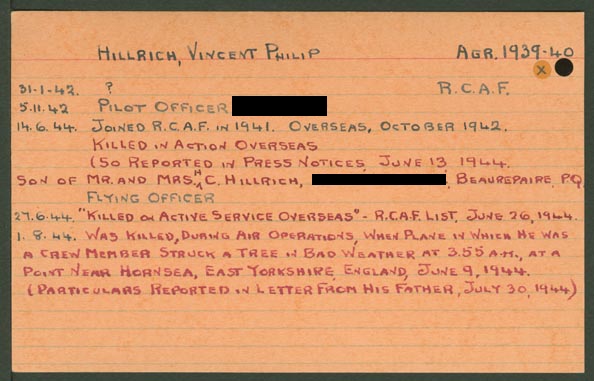 HILLRICH, VINCENT PHILIP AGR. 1939-40
X
31-1-42. ? R.C.A.F.
5.11.42 PILOT OFFICER
14.6.44. JOINED R.C.A.F. IN 1941. OVERSEAS, OCTOBER 1942.
KILLED IN ACTION OVERSEAS
(SO REPORTED IN PRESS NOTICES, JUNE 13, 1944.
SON OF MR. AND MRS. H C. HILLRICH, BEAUREPAIRE, P.Q.
FLYING OFFICER
27.6.44. "KILLED ON ACTIVE SERVICE OVERSEAS" - R.C.A.F. LIST, JUNE 26, 1944.
1.8.44. WAS KILLED, DURING AIR OPERATIONS, WHEN PLANE IN WHICH HE WAS
A CREW MEMBER STRUCK A TREE IN BAD WEATHER AT 3.55 A.M., AT A
POINT NEAR HORNSEA, EAST YORKSHIRE, ENGLAND, JUNE 9, 1944.
(PARTICULARS REPORTED IN LETTER FROM HIS FATHER, JULY 30, 1944)